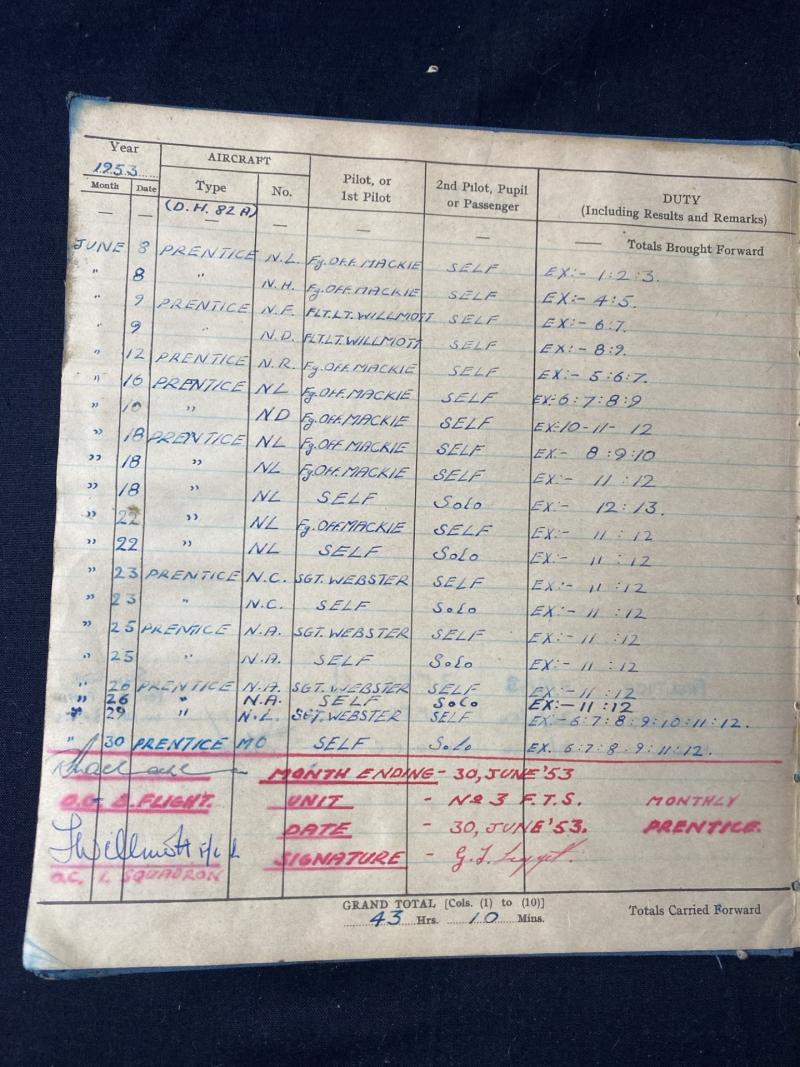 Year AIRCRAFT Pilot, or 1st Pilot 2nd Pilot, Pupil or Passenger DUTY (Including Results and Remarks)
1953
Month Date Type No.
(D.H. 82A)
— — — — — — — Totals Brought Forward
JUNE 8 PRENTICE N.L. Fg.OFF.MACKIE SELF EX:- 1:2:3.
" 8 " N.H. Fg.OFF.MACKIE SELF EX:- 4:5.
" 9 PRENTICE N.F. FLT.LT.WILLMOTT SELF EX:- 6:7.
" 9 " N.D. FLT.LT.WILLMOTT SELF EX:- 8:9.
" 12 PRENTICE N.R. Fg.OFF.MACKIE SELF EX:- 5:6:7.
" 16 PRENTICE NL Fg.OFF.MACKIE SELF EX:-6:7:8:9
" 16 " ND Fg.OFF.MACKIE SELF EX:-10-11-12
" 18 PRENTICE NL Fg.OFF.MACKIE SELF EX:- 8:9:10
" 18 " NL Fg.OFF.MACKIE SELF EX:- 11:12
" 18 " NL SELF SOLO EX:- 12:13.
" 22 " NL Fg.OFF.MACKIE SELF EX:- 11:12
" 22 " NL SELF SOLO EX:- 11:12
" 23 PRENTICE N.C. SGT.WEBSTER SELF EX:- 11:12
" 23 " N.C. SELF SOLO EX:- 11:12
" 25 PRENTICE N.A. SGT.WEBSTER SELF EX:- 11:12
" 25 " N.A. SELF SOLO EX:- 11:12
" 26 PRENTICE N.A. SGT.WEBSTER SELF EX:- 11:12
" 26 " N.A. SELF SOLO EX:-11:12
" 29 " N.L. SGT.WEBSTER SELF EX:-6:7:8:9:10:11:12.
" 30 PRENTICE MO SELF SOLO EX. 6:7:8:9:11:12.
MONTH ENDING - 30, JUNE '53
O.C. FLIGHT. UNIT - No 3 F.T.S. MONTHLY
DATE - 30, JUNE '53. PRENTICE.
Willmott F/Lt SIGNATURE -
O.C. 1. SQUADRON
GRAND TOTAL [Cols. (1) to (10)]
43 Hrs. 10 Mins. Totals Carried Forward